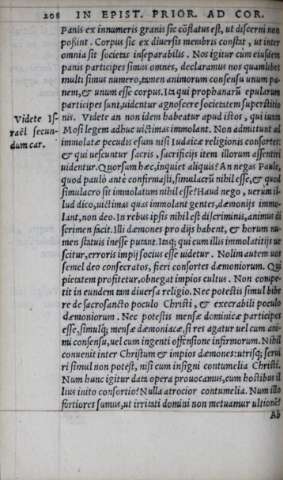 208 IN EPIST. PRIOR. AD COR.
Panis ex innumeris granis sic cōflatus est, ut discerni non
possint. Corpus sic ex diuersis membris constat, ut inter
omnia sit societas inseparabilis. Nos igitur cum eiusdem
panis participes simus omnes, declaramus nos quamlibet
multi simus numero, tamen animorum consensu unum pa-
nem, & unum esse corpus. Ita qui prophanarū epularum
participes sunt, uidentur agnoscere societatem superstitio
Videte Is- nis. Videte an non idem habeatur apud istos, qui iuxta
raël secun- Mosi legem adhuc uictimas immolant. Non admittunt ad
dum car. immolatæ pecudis esum nisi Iudaicæ religionis consortes:
& qui uescuntur sacris, sacrificijs item illorum assentiri
uidentur. Quorsum hæc, inquiet aliquis? An negas Paule,
quod paulò ante confirmasti, simulacrū nihil esse, & quod
simulacro sit immolatum nihil esse? Haud nego, uerùm il-
lud dico, uictimas quas immolant gentes, dæmonijs immo-
lant, non deo. In rebus ipsis nihil est discriminis, animus di
scrimen facit. Illi dæmones pro dijs habent, & horum nu-
men statuis inesse putant. Itaq; qui cum illis immolatitijs ue
scitur, erroris impij socius esse uidetur. Nolim autem uos
semel deo consecratos, fieri consortes dæmoniorum. Qui
pietatem profitetur, abnegat impios cultus. Non compe-
tit in eundem tam diuersa religio. Nec potestis simul bibe
re de sacrosancto poculo Christi, & execrabili poculo
dæmoniorum. Nec potestis mensæ dominicæ participes
esse, simulq; mensæ dæmoniacæ, si res agatur uel cum ani-
mi consensu, uel cum ingenti offensione infirmorum. Nihil
conuenit inter Christum & impios dæmones: utrisq; serui
ri simul non potest, nisi cum insigni contumelia Christi.
Num hunc igitur data opera prouocamus, cum hostibus il
lius inito consortio? Nulla atrocior contumelia. Num illo
fortiores sumus, ut irritati domini non metuamur ultionē?
Ab